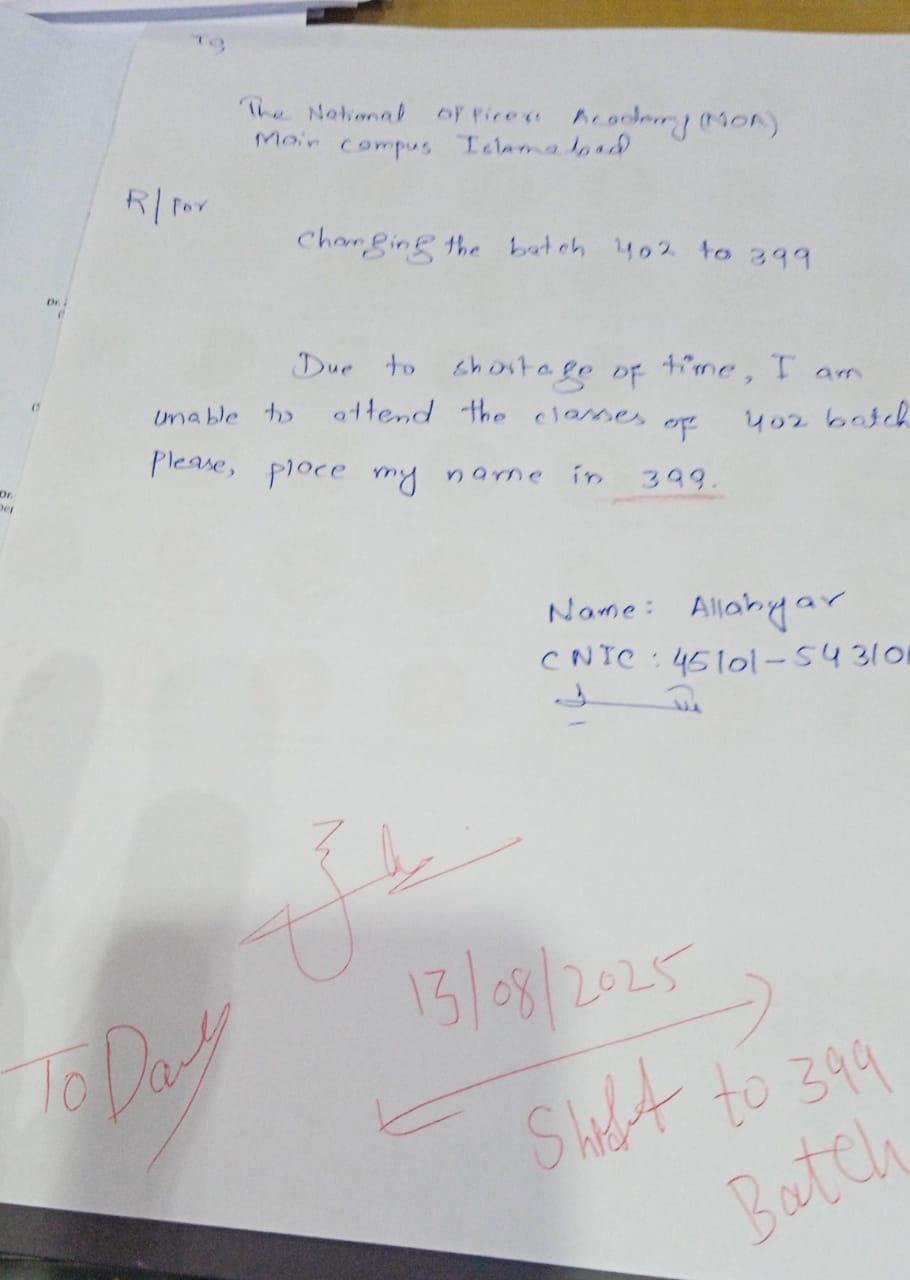 To
The National Officers Academy (NOA)
Main campus Islamabad
R/For
Changing the batch 402 to 399
Due to shortage of time, I am
unable to attend the classes of 402 batch
Please, place my name in 399.
Name: Allahyar
CNIC: 45101-543101
13/08/2025
ToDay
Shift to 399
Batch